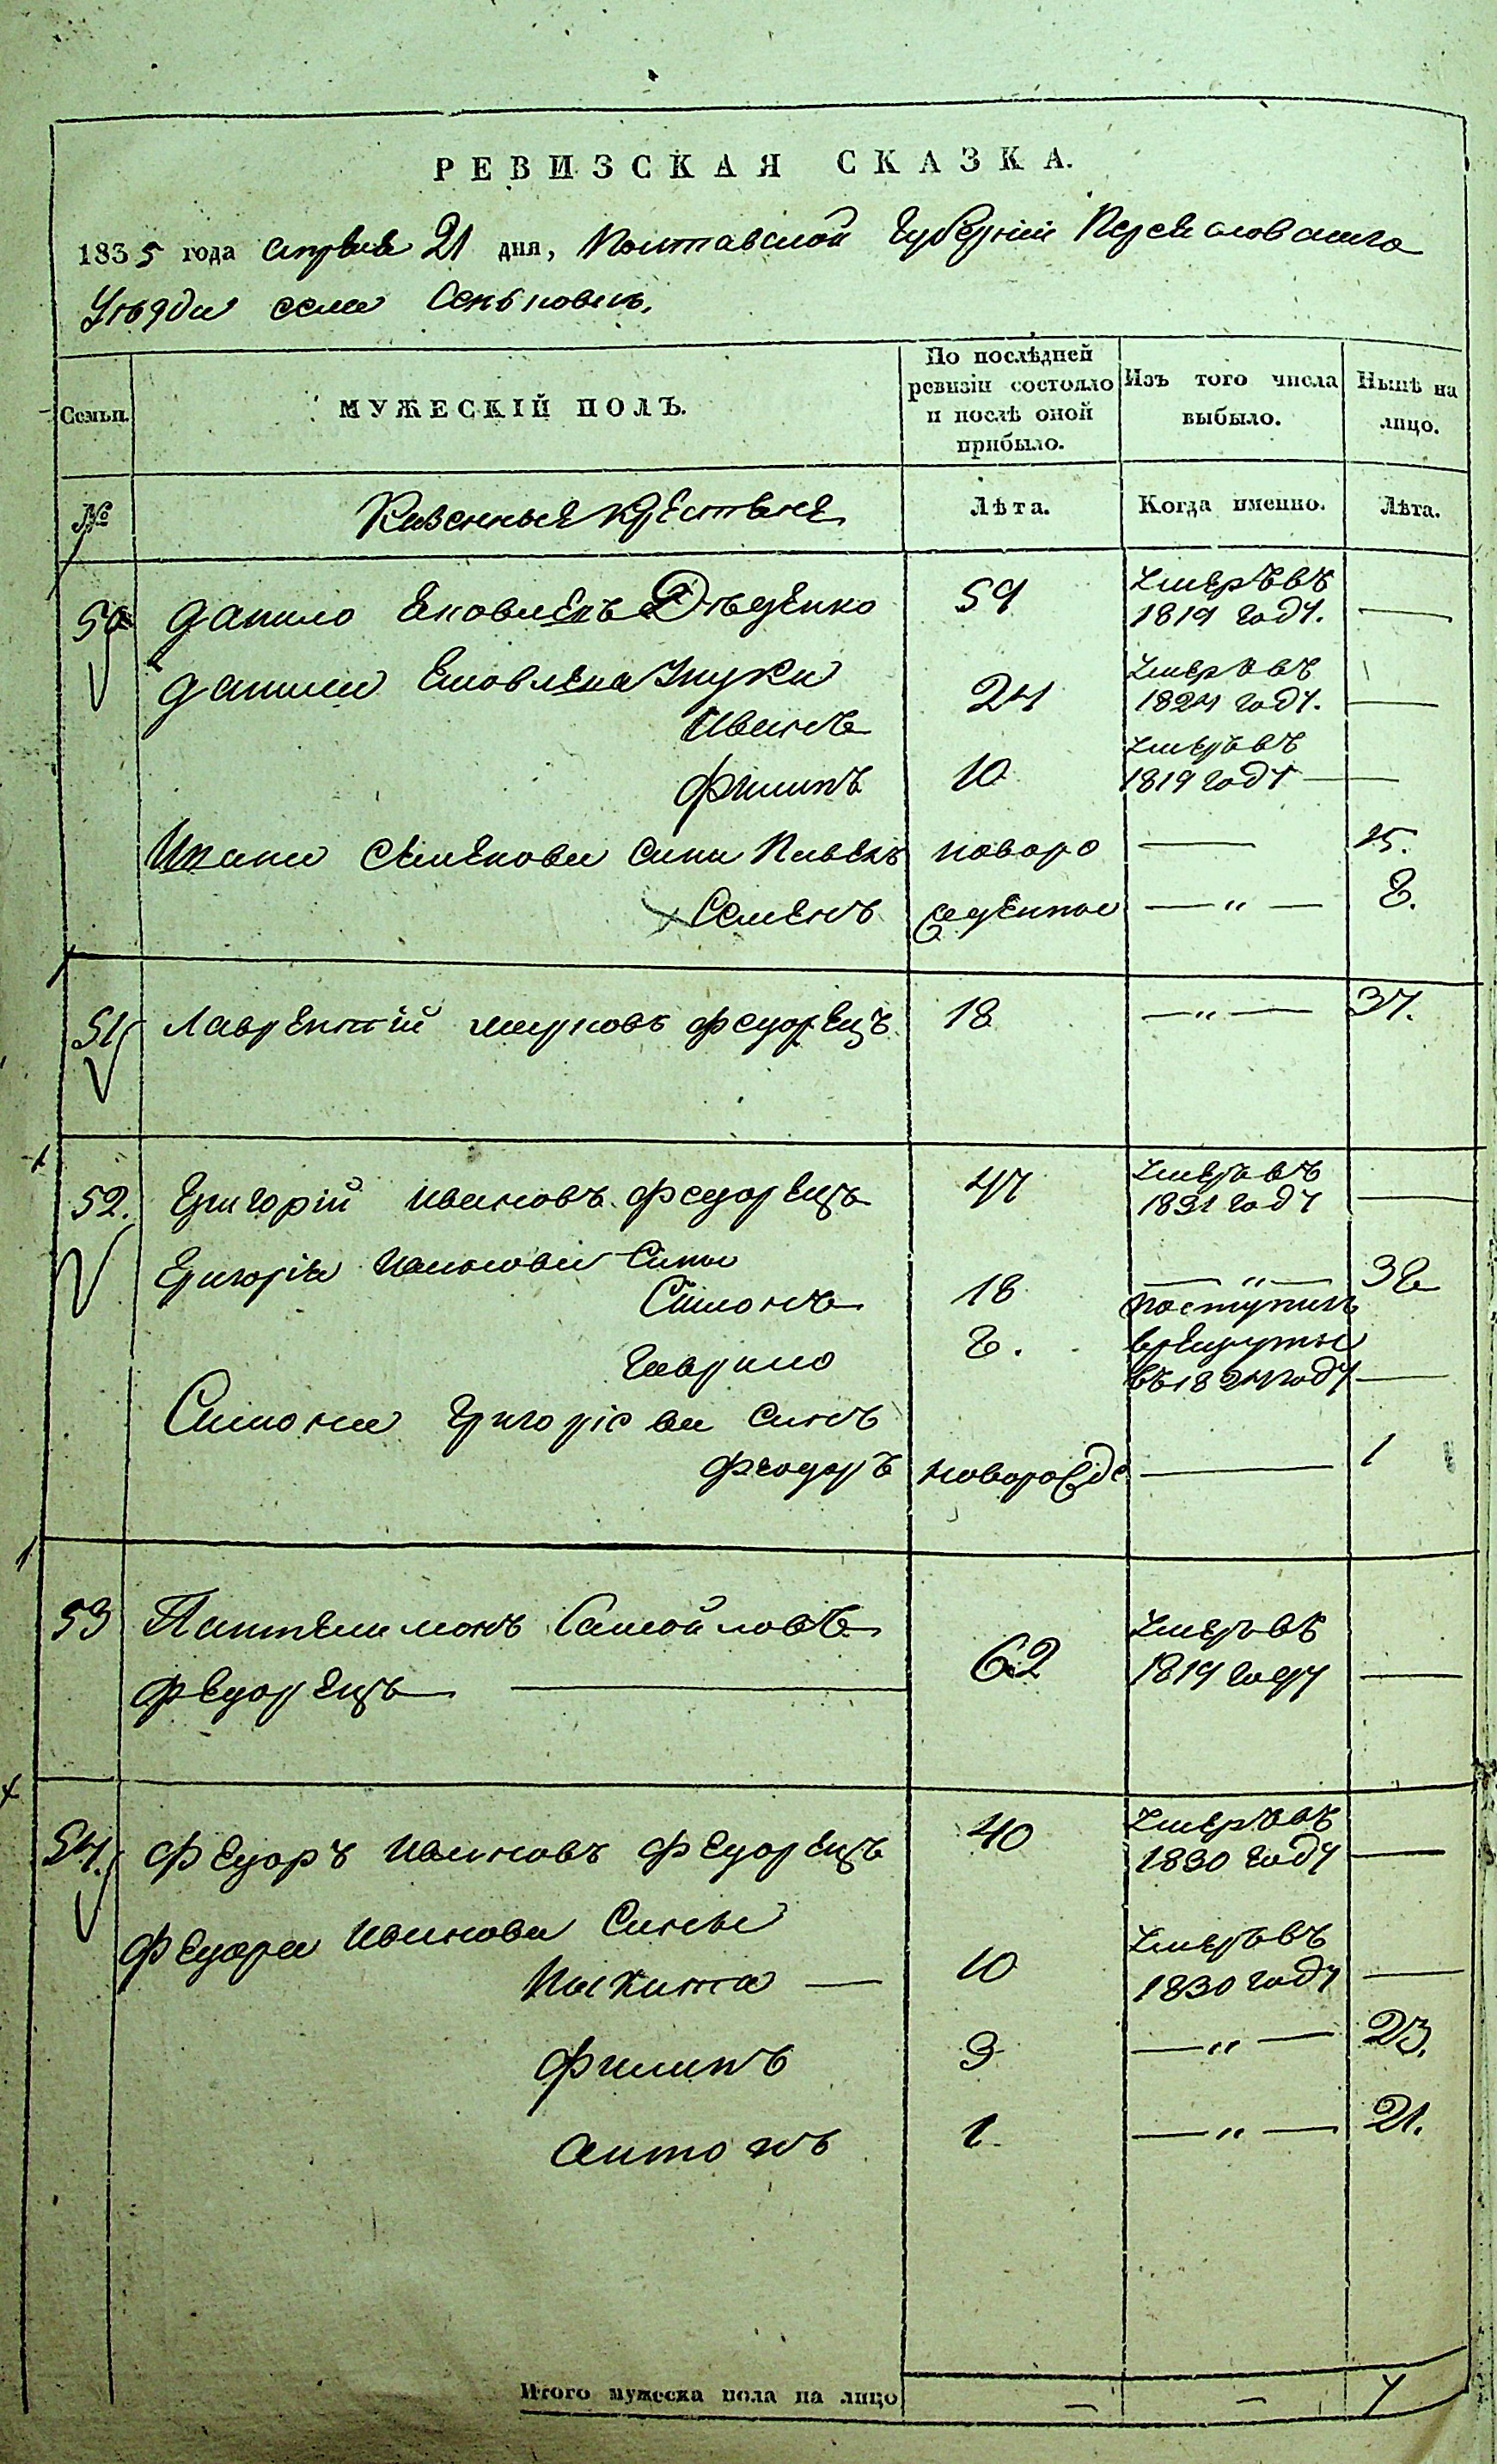 РЕВИЗСКАЯ СКАЗКА.
1835 года апреля 21 дня, Полтавской Губерніи Переяловского
Уѣзда села Сеньковец.
Семьи.
МУЖЕСКІЙ ПОЛЪ.
По послѣдней ревизіи состояло и послѣ оной прибыло.
Изъ того числа выбыло.
Нынѣ на лицо.
№
Казенные крестьяне
Лѣта.
Когда именно.
Лѣта.
50 Данило Яковлевъ Дѣденко 59 Умеръ въ 1819 году. —
Данила Яковлева Внуки
Иванъ 24 Умеръ въ 1824 году. —
Филипъ 10 Умеръ въ 1819 году —
Ивана Семенова сины Павелъ новоро — 15.
Семенъ жденные — „ — 8.
51 Лаврентій Марковъ Федорецъ 18 — „ — 37.
52. Григорій Ивановъ Федорецъ 47 Умеръ въ 1831 году —
Григорія Иванова Сины
Симонъ 18 — „ — 38
Гаврило 8. поступилъ в рекруты въ 1824 году —
Симона Григоріева синъ
Феодоръ новорожде — 1
53 Пантелимонъ Самойловъ
Федорецъ — 62 Умеръ въ 1819 году —
54. Федоръ Ивановъ Федорецъ 40 Умеръ въ 1830 году —
Федора Иванова Сины
Никита — 10 Умеръ въ 1830 году —
Филипъ 3 — „ — 23.
Антонъ 1 — „ — 21.
Итого мужеска пола на лицо — — 7